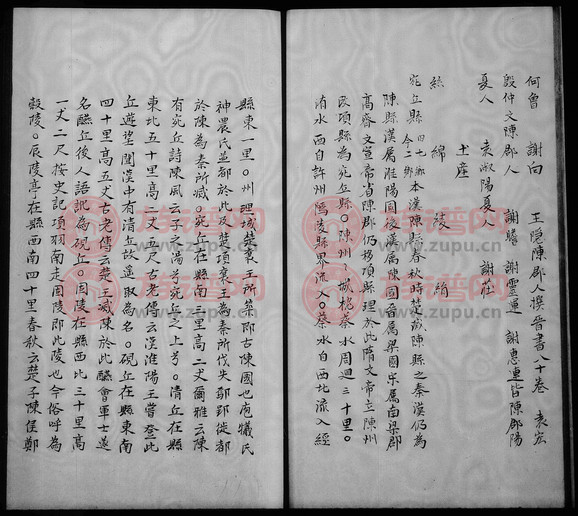 何曾 謝尚 王隱陳郡人撰晉書八十卷 袁宏
殷仲文陳郡人 謝瞻 謝靈運 謝惠連皆陳郡陽
夏人 袁淑陽夏人 謝莊
土產
絁 綿 綾 絹
宛丘縣 四十鄉今二鄉 本漢陳縣春秋時楚滅陳縣之秦漢仍為
陳縣漢屬淮陽國後漢屬陳國晉屬梁國宋屬南梁郡
高齊文宣帝省陳郡仍移項縣理於此隋文帝立陳州
改項縣為宛丘縣○陳州城枕蔡水周迴三十里○
洧水西自許州鄢陵縣界流入○蔡水自西北流入經
縣東一里○州理城楚襄王所築即古陳國也庖犧氏
神農氏並都於此及楚項襄王為秦所伐失鄢郢徙都
於陳為秦所滅○宛丘在縣南三里高二丈爾雅云陳
有宛丘詩陳風云子之湯兮宛丘之上兮○清丘在縣
東北五十里高一丈五尺古老傳云漢淮陽王嘗登此
丘遊望關漢中有清丘故遥取為名○硯丘在縣東南
四十里高五丈古老傳云楚王滅陳於此醼會軍士遂
名醼丘後人語訛為硯丘○固陵在縣西北三十里高
一丈二尺按史記項羽南走固陵即此陵也今俗呼為
穀陵○辰陵亭在縣西南四十里春秋云楚子陳侯鄭
族谱网
www.zupu.cn
族谱网
www.zupu.cn